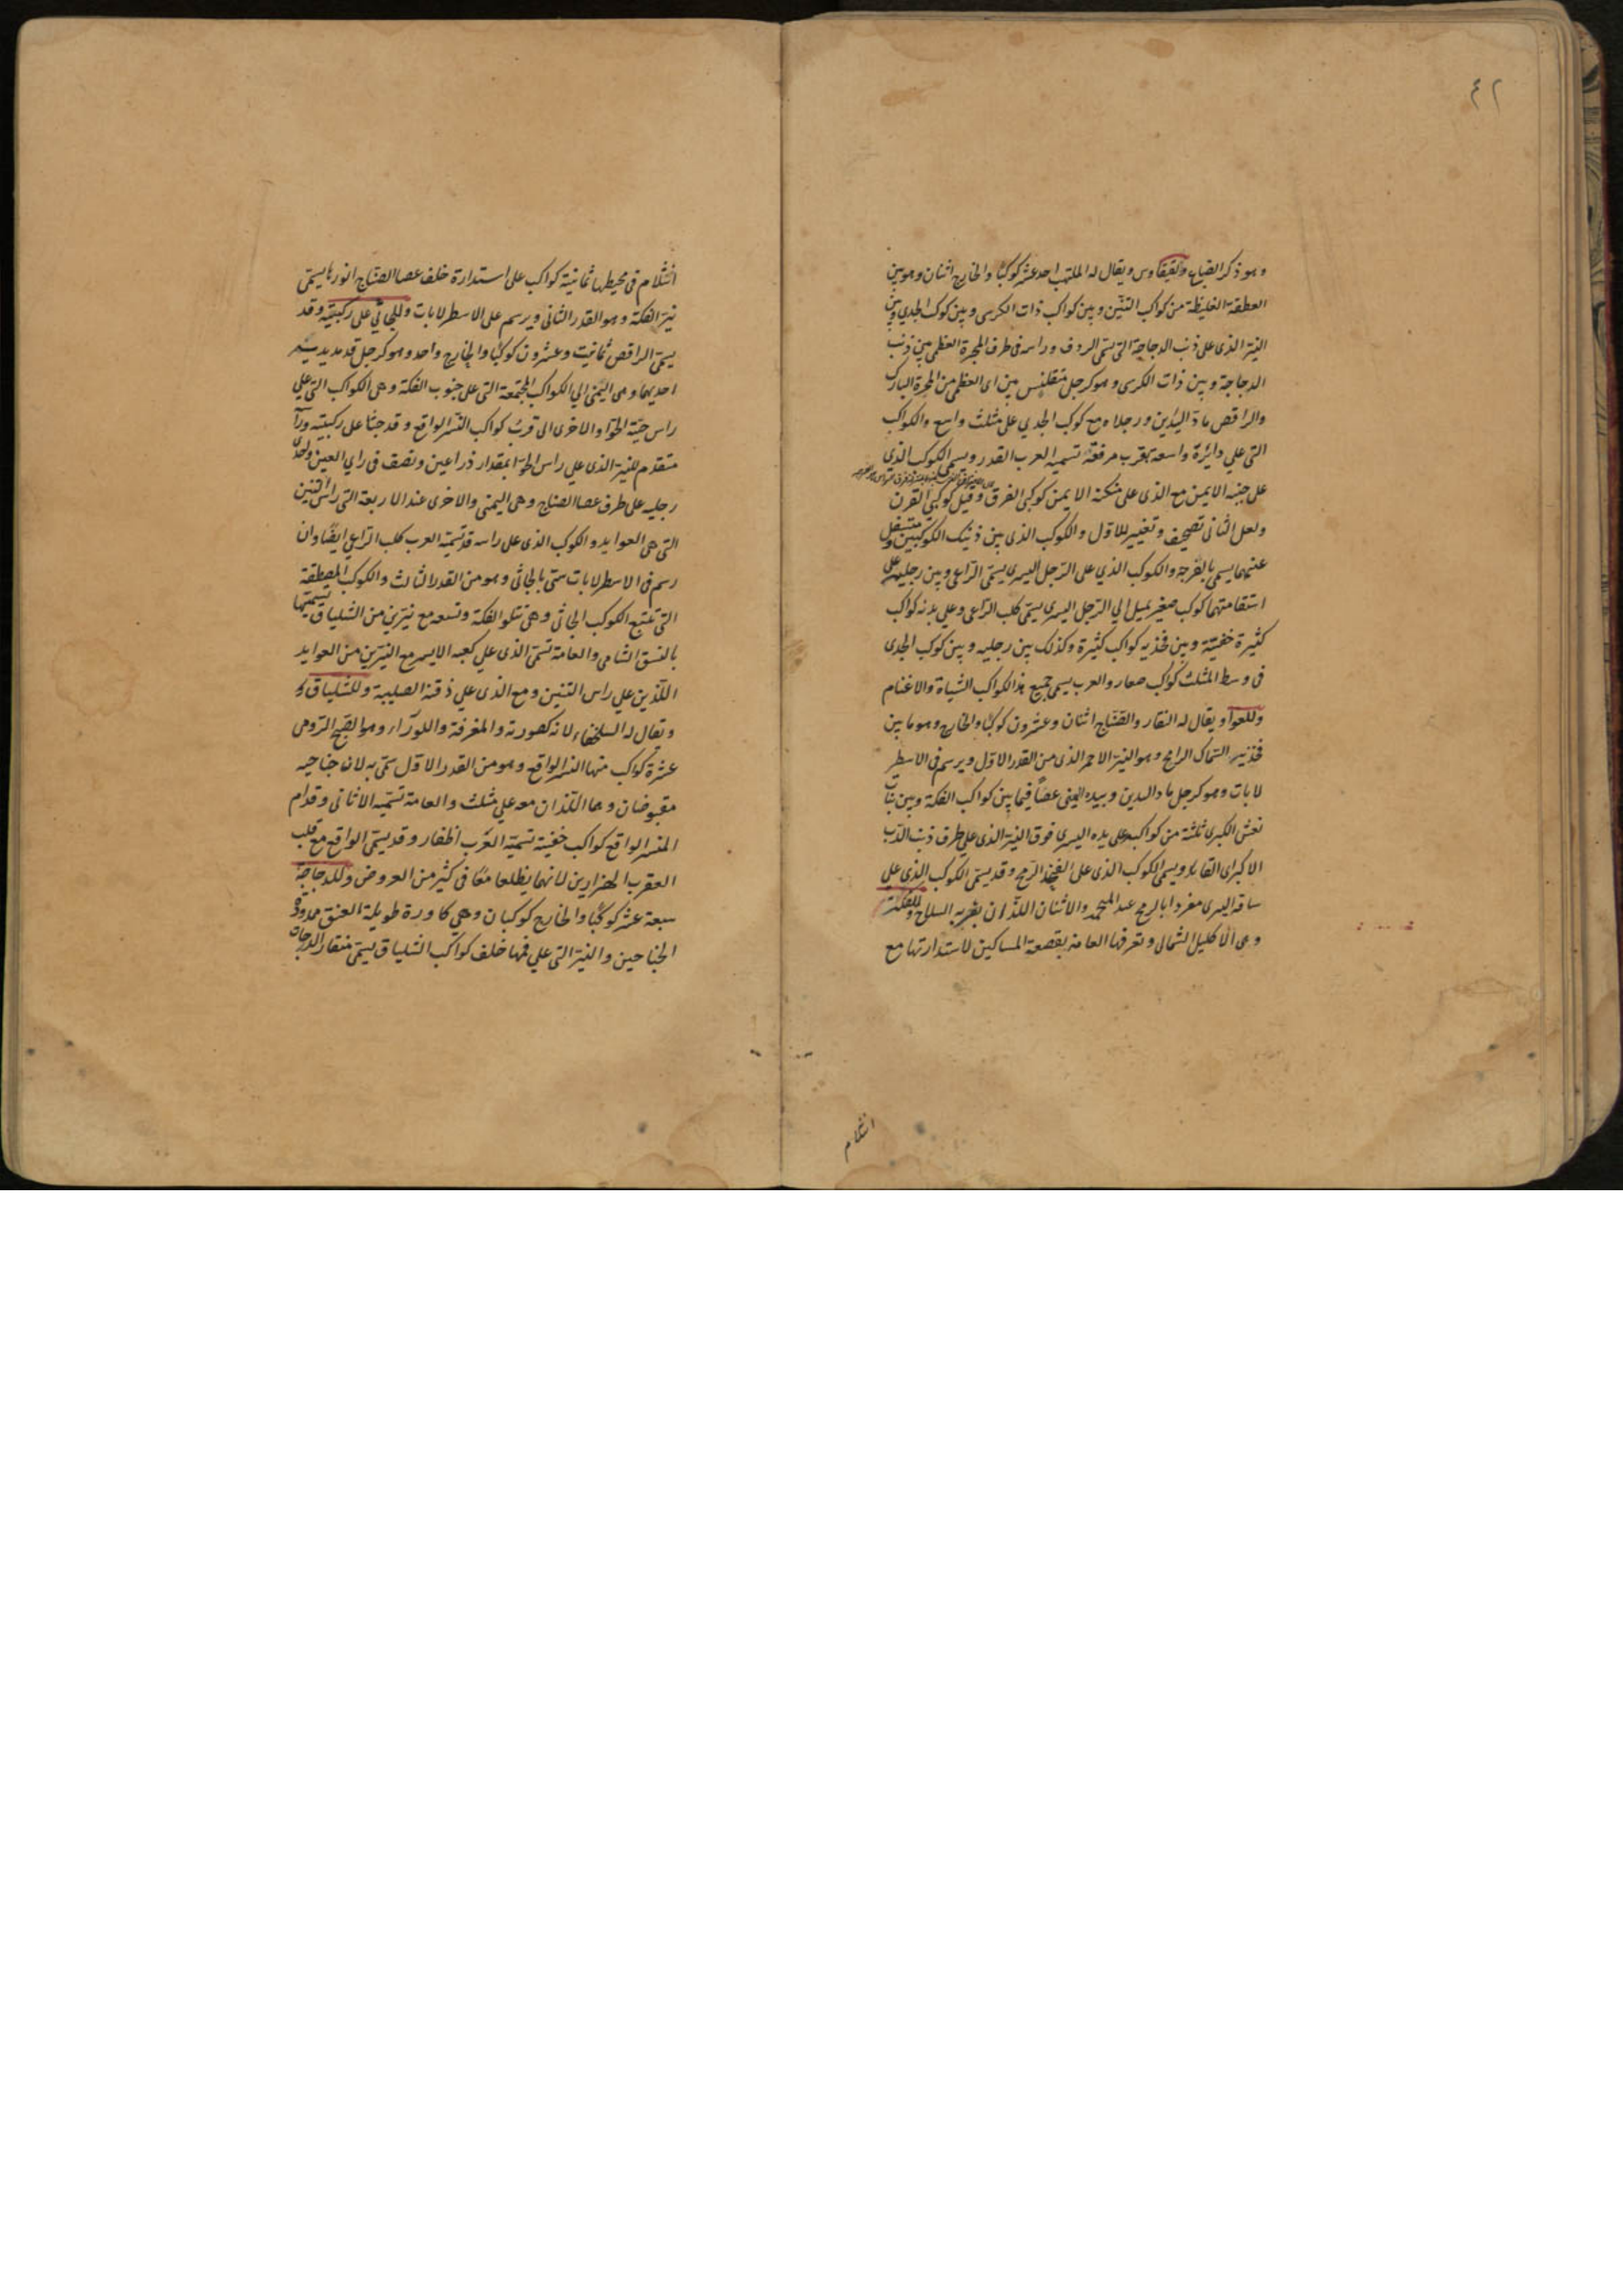 ٤٢
وهو ذكر الضباع ولقيقاوس ويقال له الملتهب احد عشر كوكبًا والخارج اثنان وهو بين
العطفة الغليظة من كواكب التنّين وبين كواكب ذات الكرسى وبين كوكب الجدي وبين
النيّر الذى على ذنب الدجاجة التى يسمّى الردف وراسه فى طرف المجرة العظمى بين ذنب
الدجاجة وبين ذات الكرسى وهو كرجل متقلنس بين اى العظمى من المجرة البارك
والراقص مادّ اليدين ورجلاه مع كوكب الجدي على مثلث واسع والكواكب
التى علي دائرة واسعة بقرب مرفقه تسميه العرب القدر ويسمى الكوكب الذي
على جنبه الايمن مع الذى على منكبه الايمن كوكبى الفرق وقيل كوكبى القرن
ولعل الثانى تصحيف وتغيير للاول والكوكب الذى بين ذينك الكوكبين متسفل
عنهما يسمى بالقرحة والكوكب الذي على الرّجل اليسرى يسمّى الرّاعى وبين رجليه على
استقامتهما كوكب صغير يميل الي الرّجل اليسرى يسمّى كلب الرّاعى وعلي بدنه كواكب
كثيرة خفيّة وبين فخذيه كواكب كثيرة وكذلك بين رجليه وبين كوكب الجدى
فى وسط المثلث كواكب صغار والعرب يسمى جميع هذا الكواكب الشياة والاغنام
وللعوا ويقال له النقار والصّنّاج اثنان وعشرون كوكبًا والخارج وهو ما بين
فخذيه السّماك الرامح وهو النيّر الاحمر الذى من القدر الاوّل ويرسم فى الاسطر
لابات وهو كرجل مادّ اليدين وبيده اليمنى عصًا فيما بين كواكب الفكة وبين بنات
نعش الكبرى ثلثة من كواكبه على يده اليسرى فوق النيّر الذى على طرف ذنب الدّب
الاكبر اى القايد ويسمى الكوكب الذى على الفخذ الرّمح وقد يسمّى الكوكب الذى على
ساقه اليسرى مفردا بالرمح عند المنجمين والاثنان اللذان بقربه السلاح وللفكّة
وهى الاكليل الشمالى وتعرفها العامة بقصعة المساكين لاستدارتها مع
انثلام
انثلام فى محيطها ثمانية كواكب على استدارة خلف عصا الصّنّاج انورها يسمّى
نيّر الفكة وهو القدر الثانى ويرسم على الاسطرلابات وللجاثي على ركبتيه وقد
يسمّى الراقص ثمانيت وعشرون كوكبًا والخارج واحد وهو كرجل قد مدّ يديه
احديهما وهى اليمنى الي الكواكب المجتمعة التى على جنوب الفكة وهى الكواكب التى علي
راس حيّة الحوّا والاخرى الى قرب كواكب النّسر الواقع وقد جثا على ركبتيه ورا
متقدم للنيّر الذى على راس الحوّا بمقدار ذراعين ونصف فى راي العين واحدى
رجليه على طرف عصا الصناج وهى اليمنى والاخرى عند الاربعة التى راس التنين
التى هى العوايد والكوكب الذى على راسه قد تسميّه العرب كلب الرّاعي ايضًا وان
رسم فى الاسطرلابات سمّى بالجاثى وهو من القدر الثالث والكوكب المصطفة
التى تتبع الكوكب الجاثى وهى تتلو الفكة وتسعه مع نيّرين من الشلياق تسميتها
بالنسق الشامى والعامة تسمّى الذى على كعبه الايسر مع النيّرين من العوايد
اللّذين على راس التنين ومع الذى علي ذقنه الصليبة وللشلياق
ويقال له السلحفاه لانه كصورته والمغرفة واللورآ، وهو الصّنج الرّومى
عشرة كواكب منها النسر الواقع وهو من القدر الاوّل سمّى به لان جناحيه
مقبوضان وهما اللّذان معه على مثلث والعامة تسمّيه الاثافى وقدام
النسر الواقع كواكب خفيّة تسميّه العرب اظفار وقد يسمّى الواقع مع قلب
العقرب الهزارين لانهما يطلعا معًا فى كثير من العروض وللدجاجة
سبعة عشر كوكبًا والخارج كوكبان وهي كاورة طويلة العنق ممدودة
الجناحين والنيّر التى علي فمها خلف كواكب الشلياق يسمّى منقار الدجاجة